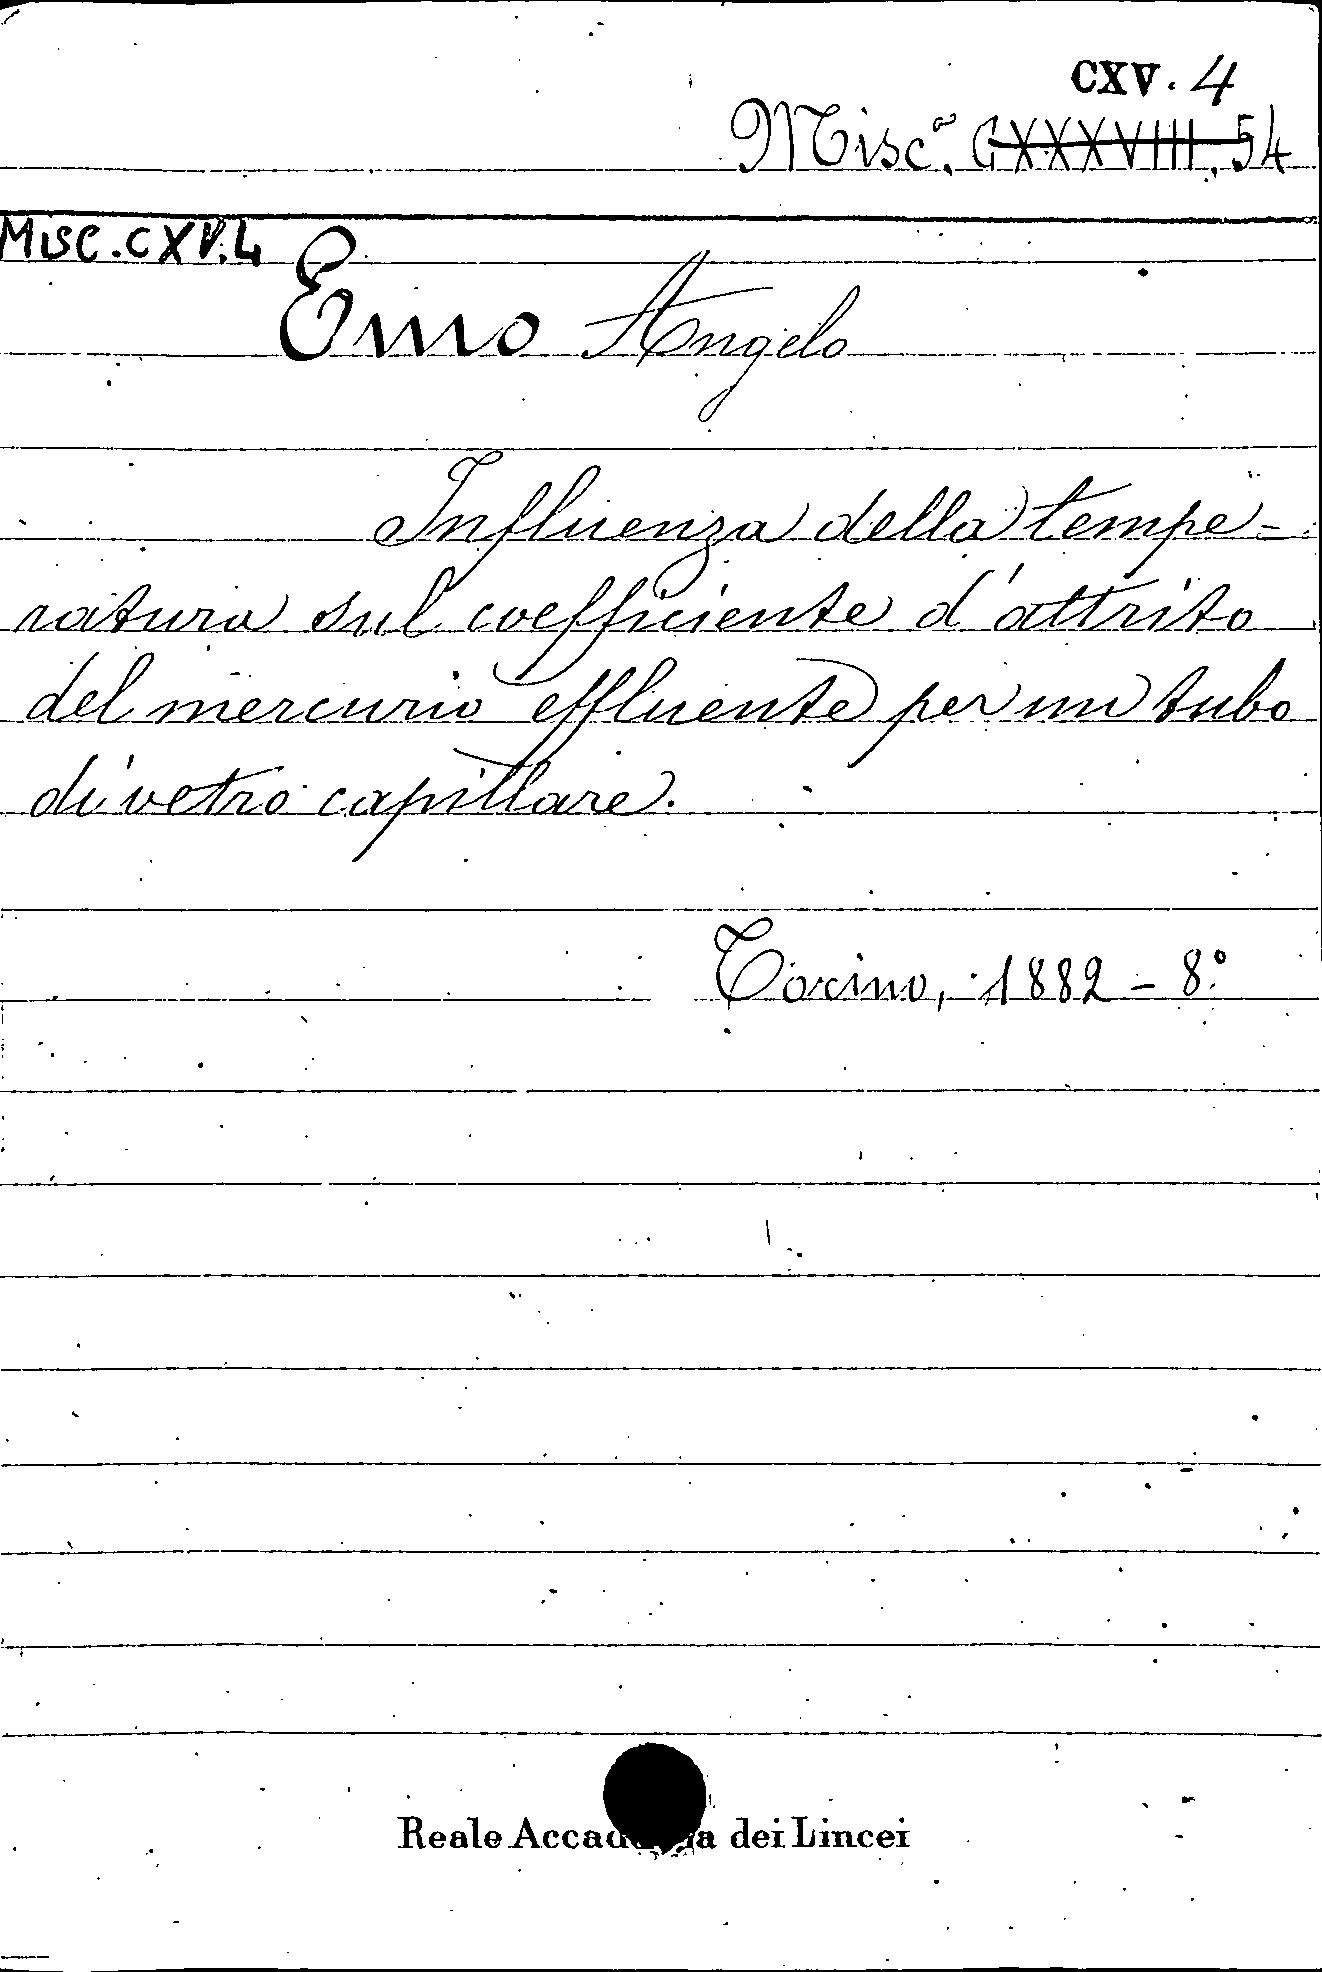 CXV. 4
Misc.ª CXXXVIII. 54
Misc. CXV. 4
Emo Angelo
Influenza della tempe=
ratura sul coefficiente d'attrito
del mercurio effluente per un tubo
di vetro capillare.
Torino, 1882 - 8.º
Reale Accademia dei Lincei